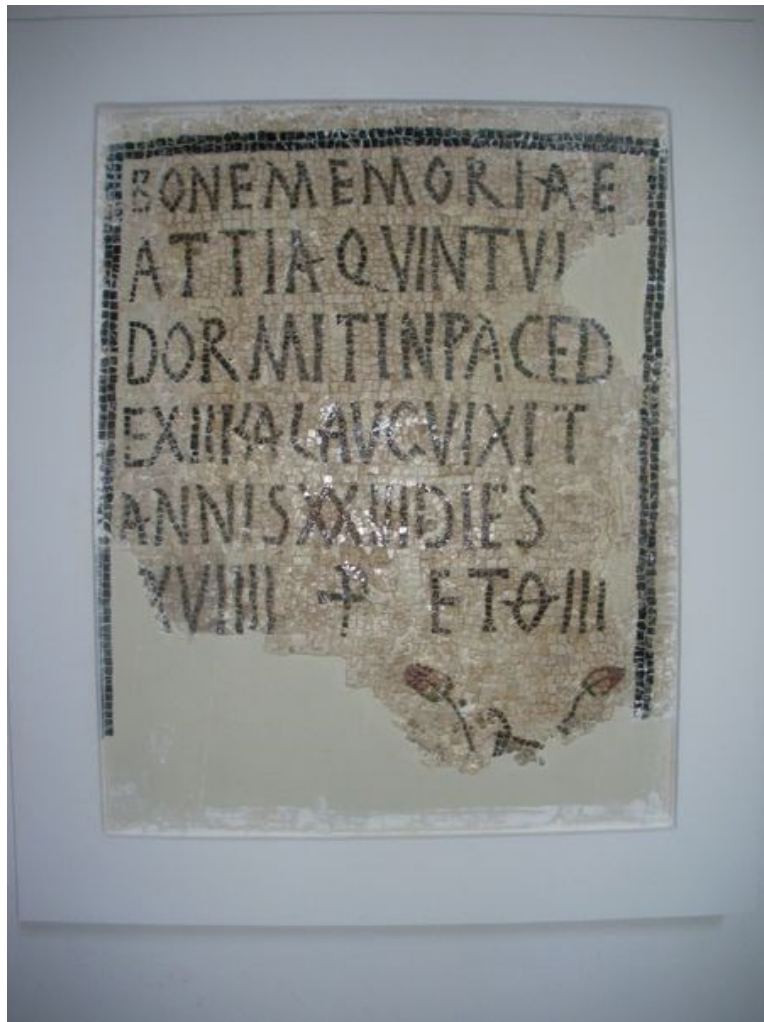 BONEMEMORIAE
ATTIAQVINTVI
DORMITINPACED
EXIIKALAVGVIXIT
ANNISXXIIIDIES
XVIIII ⳨ ETOIII